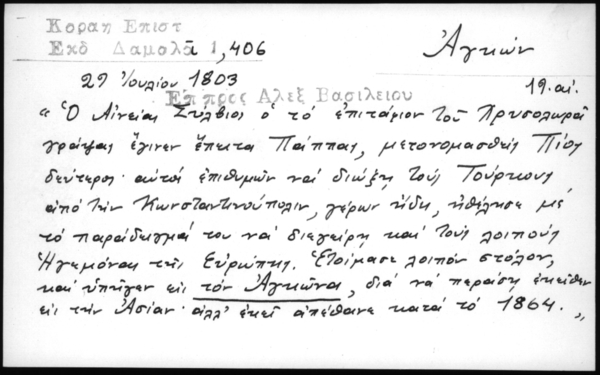 Κοραη Επιστ
Εκδ Δαμαλᾶ 1,406
Ἀγκών
29 Ἰουλίου 1803
19. αἰ.
Επ προς Αλεξ Βασιλειου
“ Ὁ Αἰνείας Σύλβιος ὁ τό ἐπιτάφιον τοῦ Χρυσολωρᾶ
γράψας ἔγινεν ἔπειτα Πάππας, μετονομασθείς Πίος
δεύτερος· αὐτός ἐπιθυμῶν νά διώξῃ τούς Τούρκους
ἀπό τήν Κωνσταντινούπολιν, γέρων ἤδη, ἠθέλησε μέ
τό παράδειγμά του νά διεγείρῃ καί τούς λοιπούς
Ἡγεμόνας τῆς Εὐρώπης. Ἑτοίμασε λοιπόν στόλον,
καί ὑπῆγεν εἰς τόν Ἀγκῶνα, διά νά περάσῃ ἐκεῖθεν
εἰς τήν Ἀσίαν· ἀλλ' ἐκεῖ ἀπέθανε κατά τό 1864. „